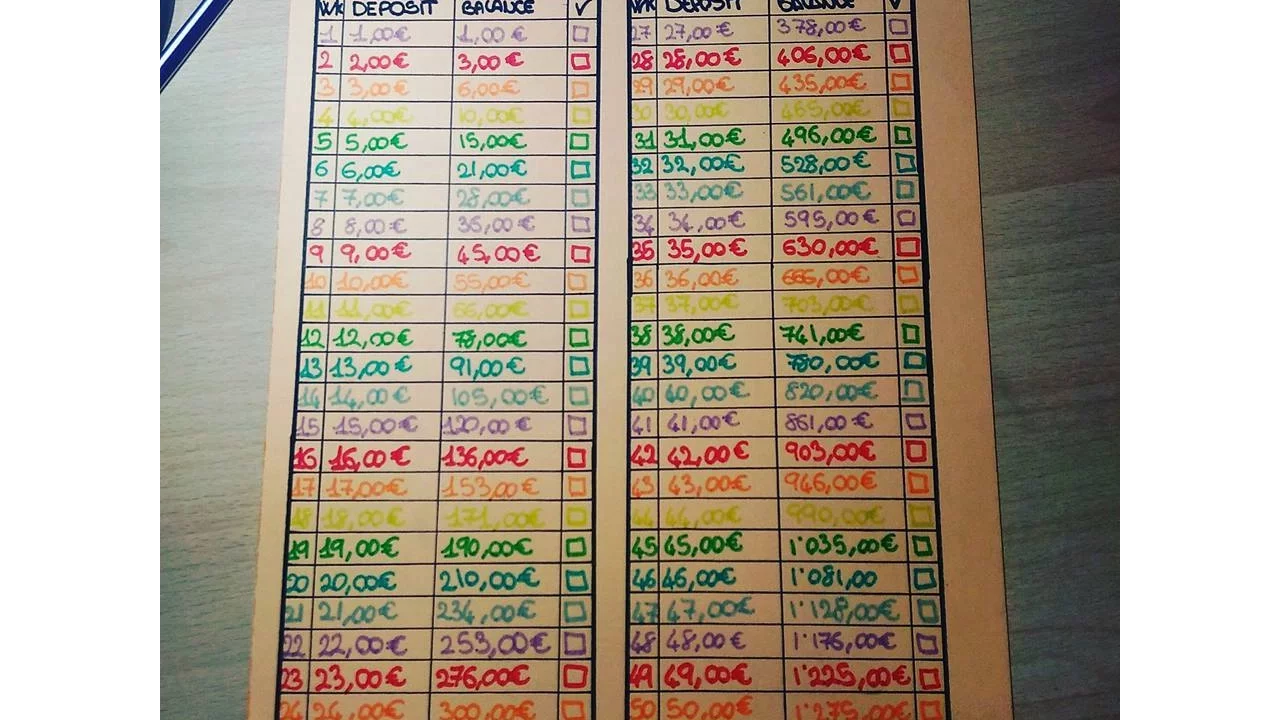 WK DEPOSIT BALANCE ✓
1 1,00€ 1,00€ □
2 2,00€ 3,00€ □
3 3,00€ 6,00€ □
4 4,00€ 10,00€ □
5 5,00€ 15,00€ □
6 6,00€ 21,00€ □
7 7,00€ 28,00€ □
8 8,00€ 36,00€ □
9 9,00€ 45,00€ □
10 10,00€ 55,00€ □
11 11,00€ 66,00€ □
12 12,00€ 78,00€ □
13 13,00€ 91,00€ □
14 14,00€ 105,00€ □
15 15,00€ 120,00€ □
16 16,00€ 136,00€ □
17 17,00€ 153,00€ □
18 18,00€ 171,00€ □
19 19,00€ 190,00€ □
20 20,00€ 210,00€ □
21 21,00€ 234,00€ □
22 22,00€ 253,00€ □
23 23,00€ 276,00€ □
24 24,00€ 300,00€ □
WK DEPOSIT BALANCE ✓
27 27,00€ 378,00€ □
28 28,00€ 406,00€ □
29 29,00€ 435,00€ □
30 30,00€ 465,00€ □
31 31,00€ 496,00€ □
32 32,00€ 528,00€ □
33 33,00€ 561,00€ □
34 34,00€ 595,00€ □
35 35,00€ 630,00€ □
36 36,00€ 666,00€ □
37 37,00€ 703,00€ □
38 38,00€ 741,00€ □
39 39,00€ 780,00€ □
40 40,00€ 820,00€ □
41 41,00€ 861,00€ □
42 42,00€ 903,00€ □
43 43,00€ 946,00€ □
44 44,00€ 990,00€ □
45 45,00€ 1'035,00€ □
46 46,00€ 1'081,00 □
47 47,00€ 1'128,00€ □
48 48,00€ 1'176,00€ □
49 49,00€ 1'225,00€ □
50 50,00€ 1'275,00€ □